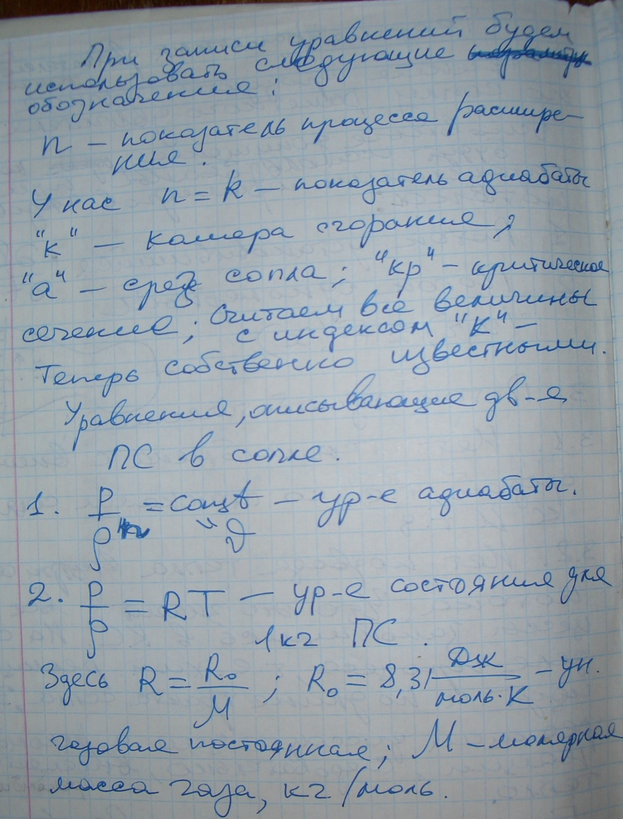 При записи уравнений будем
использовать следующие
обозначения:
n – показатель процесса расшире-
ния.
У нас n = k – показатель адиабаты
"к" – камера сгорания,
"а" – срез сопла; "кр" – критическое
сечение; Считаем все величины
с индексом "к" –
Теперь собственно известными.
Уравнения, описывающие дв-е
ПС в сопле.
1. p/ρⁿ = const – ур-е адиабаты.
2. p/ρ = RT – ур-е состояния для
1 кг ПС.
Здесь R = R₀/M ; R₀ = 8,31 Дж/моль·К – ун.
газовая постоянная; M – молярная
масса газа, кг/моль.